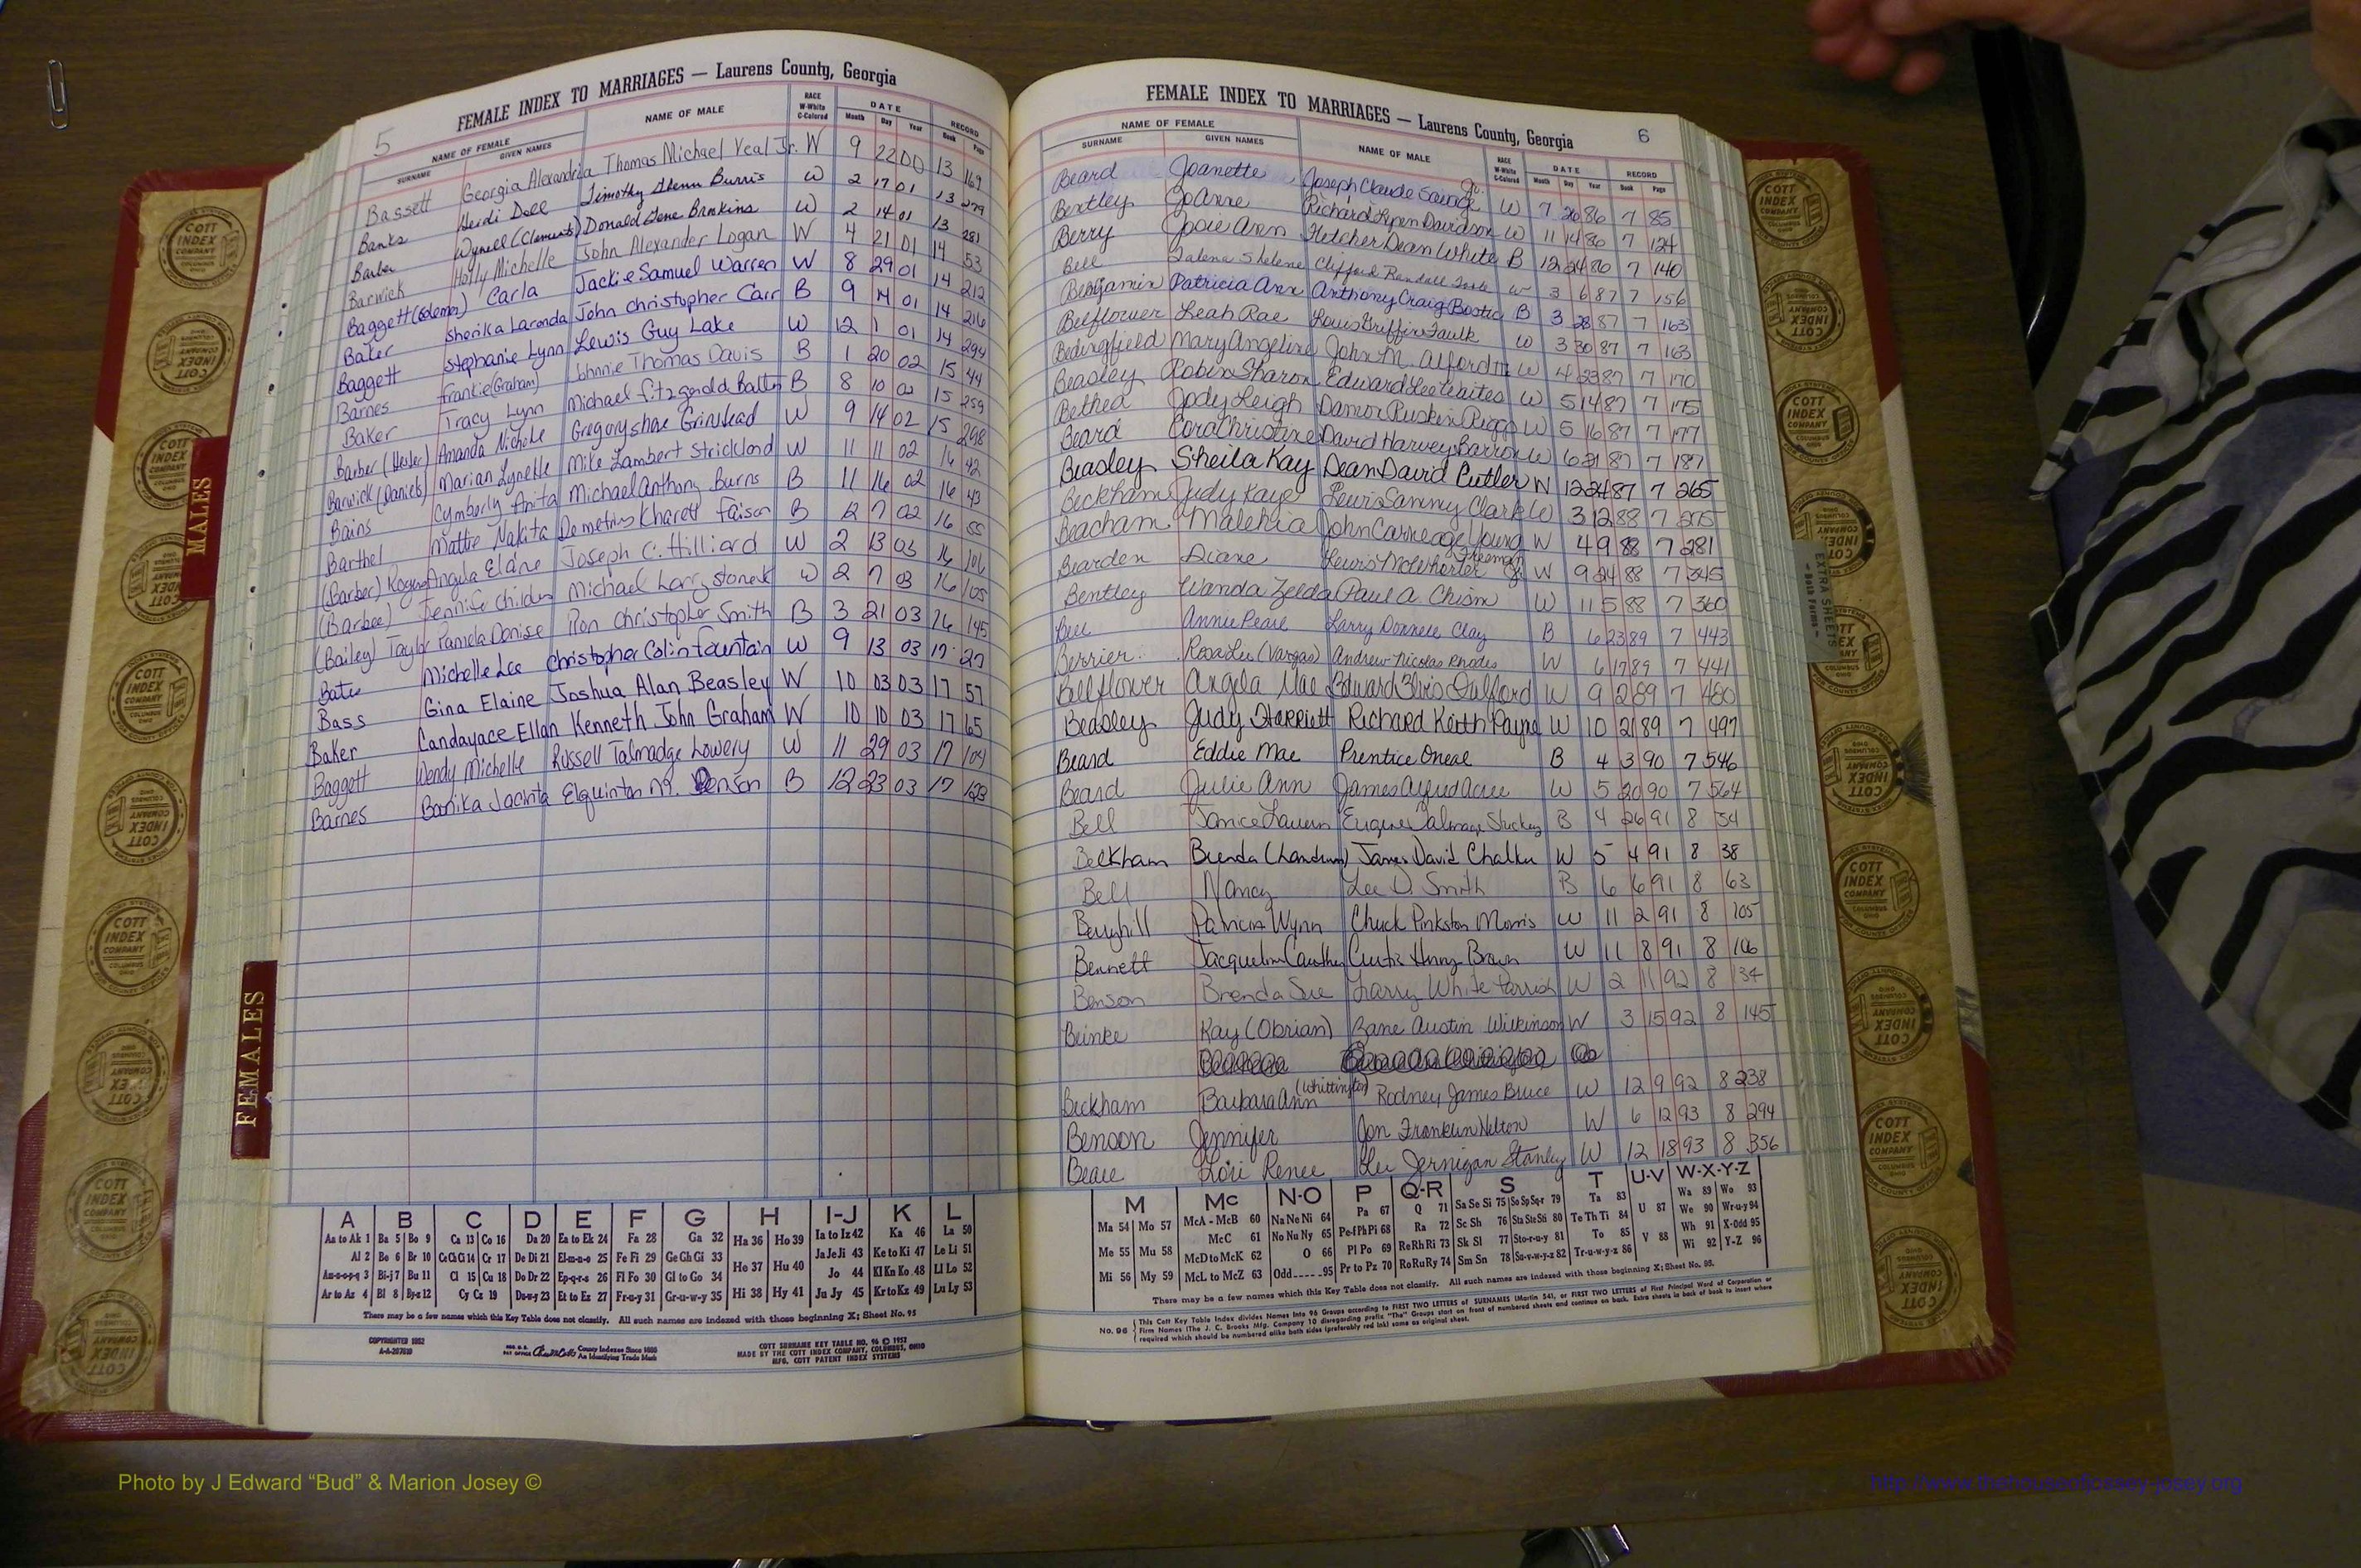 5
FEMALE INDEX TO MARRIAGES — Laurens County, Georgia
NAME OF FEMALE NAME OF MALE RACE W-White C-Colored DATE RECORD
SURNAME GIVEN NAMES Month Day Year Book Page
Bassett Georgia Alexandria Thomas Michael Veal Jr. W 9 22 00 13 169
Banks Heidi Dell Timothy Glenn Burris W 2 17 01 13 279
Barber Wynell (Clements) Donald Gene Brookins W 2 14 01 13 281
Barwick Holly Michelle John Alexander Logan W 4 21 01 14 53
Baggett (Coleman) Carla Jackie Samuel Warren W 8 29 01 14 212
Baker Sherika Laronda John Christopher Carr B 9 14 01 14 216
Baggett Stephanie Lynn Lewis Guy Lake W 12 1 01 14 294
Barnes Frankie (Graham) Johnnie Thomas Davis B 1 20 02 15 44
Baker Tracy Lynn Michael Fitzgerald Batts B 8 10 02 15 259
Barber (Hester) Amanda Nichole Gregory Shane Grinstead W 9 14 02 15 298
Barwick (Daniels) Marian Lynette Mike Lambert Strickland W 11 11 02 16 42
Bains Cymberly Anita Michael Anthony Burns B 11 16 02 16 43
Barthel Mattie Nakita Demetrius Kharett Faison B 12 7 02 16 55
(Barber) Rogers Angela Elaine Joseph C. Hilliard W 2 13 03 16 106
(Barbee) Jennife Childers Michael Larry W 2 7 03 16 105
(Bailey) Taylor Pamela Denise Ron Christopher Smith B 3 21 03 16 145
Bates Michelle Lee Christopher Colin Fountain W 9 13 03 17 27
Bass Gina Elaine Joshua Alan Beasley W 10 03 03 17 57
Baker Candayace Ellan Kenneth John Graham W 10 10 03 17 65
Baggett Wendy Michelle Russell Talmadge Lowery W 11 29 03 17 104
Barnes Bonika Jacinta Elquinton M. B 12 23 03 17 123
A B C D E F G H I-J K L
Aa to Ak 1 Ba 5 Bo 9 Ca 13 Co 16 Da 20 Ea to Ek 24 Fa 28 Ga 32 Ha 36 Ho 39 Ia to Iz 42 Ka 46 La 50
Al 2 Be 6 Br 10 Ce Ch Ci 14 Cr 17 De Di 21 El-m-n-o 25 Fe Fi 29 Ge Gh Gi 33 He 37 Hu 40 Ja Je Ji 43 Ke to Ki 47 Le Li 51
Am-n-o-p-q 3 Bi-j 7 Bu 11 Cl 15 Cu 18 Do Dr 22 Ep-q-r-s 26 Fl Fo 30 Gl to Go 34 Jo 44 Kl Kn Ko 48 Ll Lo 52
Ar to Az 4 Bl 8 By-z 12 Cy Cz 19 Du-w-y 23 Et to Ez 27 Fr-u-y 31 Gr-u-w-y 35 Hi 38 Hy 41 Ju Jy 45 Kr to Kz 49 Lu Ly 53
There may be a few names which this Key Table does not classify. All such names are indexed with those beginning X; Sheet No. 95
COPYRIGHTED 1952
County Indexes Since 1888
An Identifying Trade Mark
COTT SURNAME KEY TABLE NO. 96 © 1952
MADE BY THE COTT INDEX COMPANY, COLUMBUS, OHIO
MFG. COTT PATENT INDEX SYSTEMS
MALES
FEMALES
COTT INDEX COMPANY COLUMBUS OHIO
6
FEMALE INDEX TO MARRIAGES — Laurens County, Georgia
NAME OF FEMALE NAME OF MALE RACE W-White C-Colored DATE RECORD
SURNAME GIVEN NAMES Month Day Year Book Page
Beard Joanette Joseph Claude Savage Jr. W 7 26 86 7 85
Bentley JoAnne Richard Davidson W 11 14 86 7 124
Berry Josie Ann Fletcher Dean White B 12 24 86 7 140
Bell Salena Shelene Clifford Randall W 3 6 87 7 156
Benjamin Patricia Ann Anthony Craig Bostic B 3 28 87 7 163
Belflower Leah Rae Louis Griffin Faulk W 3 30 87 7 163
Bedingfield Mary Angeline John M. Alford III W 4 23 87 7 170
Beasley Robin Sharon Edward Lee Waites W 5 14 87 7 175
Bethea Jody Leigh Damon Ruskin Riggs W 5 16 87 7 177
Beard Cora Christine David Harvey Barron W 6 21 87 7 187
Beasley Sheila Kay Dean David Cutler W 12 24 87 7 265
Beckham Judy Kaye Lewis Sammy Clark W 3 12 88 7 275
Beacham Malehia John Carreage Young W 4 9 88 7 281
Bearden Diane Lewis McWhorter Freeman Jr. W 9 24 88 7 345
Bentley Wanda Zelda Paul A. Chism W 11 5 88 7 360
Bell Annie Pearl Larry Donnell Clay B 6 23 89 7 443
Berrier Rosa Lee (Vargas) Andrew Nicolas Rhodes W 6 17 89 7 441
Bellflower Angela Mae Edward Elvis Fulford W 9 2 89 7 480
Beasley Judy Harriett Richard Keith Payne W 10 21 89 7 497
Beard Eddie Mae Prentice Oneal B 4 3 90 7 546
Beard Julie Ann James Alfred Acree W 5 20 90 7 564
Bell Janice Lavern Eugene Talmage Stuckey B 4 26 91 8 34
Beckham Brenda James David Chalker W 5 4 91 8 38
Bell Nancy Lee D. Smith B 6 6 91 8 63
Berryhill Patricia Wynn Chuck Pinkston Morris W 11 2 91 8 105
Bennett Jacqueline Curtis Henry Brown W 11 8 91 8 106
Benson Brenda Sue Larry White Parrish W 2 11 92 8 134
Beinke Kay (Obrian) Zane Austin Wilkinson W 3 15 92 8 145
Beckham Barbara Ann (Whittington) Rodney James Bruce W 12 9 92 8 238
Benson Jennifer Jon Franklin Helton W 6 12 93 8 294
Lori Renee Lee Jernigan Stanley W 12 18 93 8 356
M Mc N-O P Q-R S T U-V W-X-Y-Z
Ma 54 Mo 57 McA - McB 60 Na Ne Ni 64 Pa 67 Q 71 Sa Se Si 75 So Sp Sq-r 79 Ta 83 U 87 Wa 89 Wo 93
Me 55 Mu 58 McC 61 No Nu Ny 65 Pe-f Ph Pi 68 Ra 72 Sc Sh 76 Sta Ste Sti 80 Te Th Ti 84 We 90 Wr-u-y 94
McD to McK 62 O 66 Pl Po 69 Re Rh Ri 73 Sk Sl 77 Sto-r-u-y 81 To 85 V 88 Wh 91 X-Odd 95
Mi 56 My 59 McL to McZ 63 Odd 95 Pr to Pz 70 Ro Ru Ry 74 Sm Sn 78 Su-v-w-y-z 82 Tr-u-w-y-z 86 Wi 92 Y-Z 96
There may be a few names which this Key Table does not classify. All such names are indexed with those beginning X; Sheet No. 95.
No. 96 This Cott Key Table Index divides Names into 96 Groups according to FIRST TWO LETTERS of SURNAMES (Martin 54), or FIRST TWO LETTERS of First Principal Word of Corporation or
Firm Names (The J. C. Brooks Mfg. Company 10 disregarding prefix "The" Groups start on front of numbered sheets and continue on back. Extra sheets in back of book to insert where
required which should be numbered alike both sides (preferably red ink) same as original sheet.
EXTRA SHEETS
— Both Forms —
Photo by J Edward “Bud” & Marion Josey ©
http://www.thehouseofjossey-josey.org